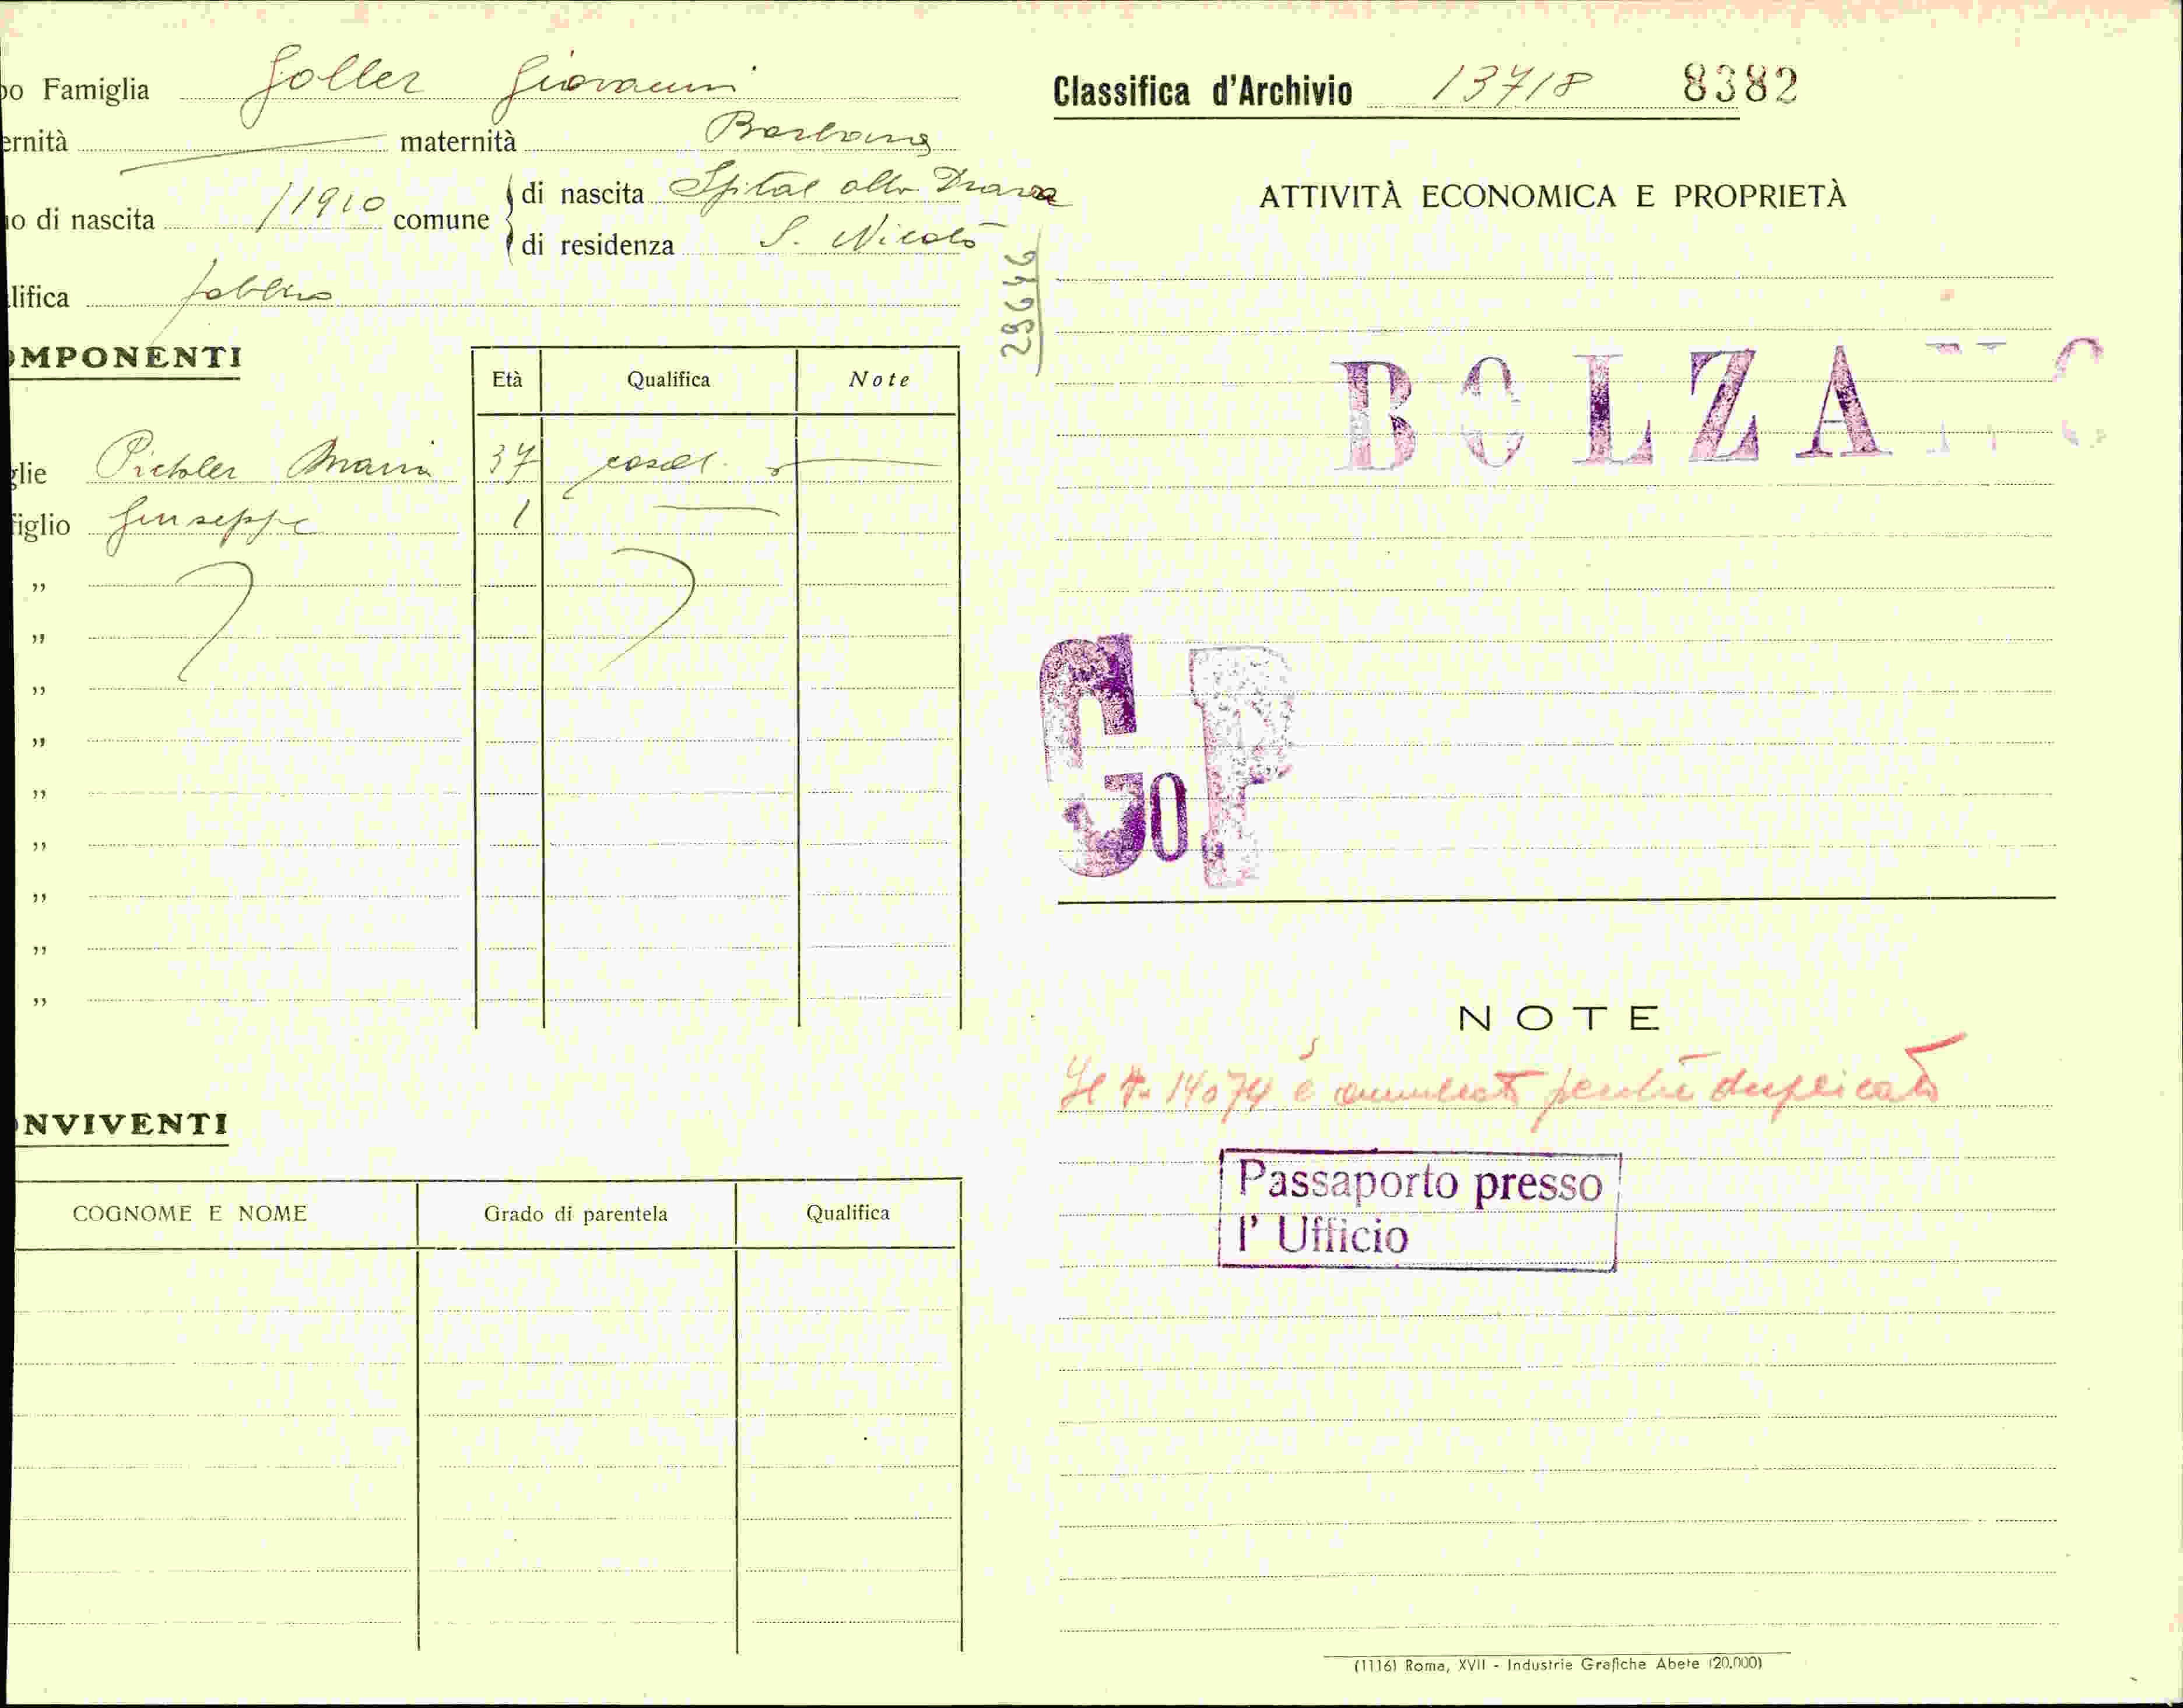 po Famiglia Goller Giovanni
ernità maternità Barbara
no di nascita /1910 comune di nascita Spital alla Drava
di residenza S. Nicolò
lifica fabbro
29646
OMPONENTI
Età Qualifica Note
glie Pichler Maria 37 casal.
figlio Giuseppe 1
„
„
„
„
„
„
„
„
„
ONVIVENTI
COGNOME E NOME Grado di parentela Qualifica
Classifica d'Archivio 13718 8382
ATTIVITÀ ECONOMICA E PROPRIETÀ
BOLZANO
G O P
NOTE
Il 14074 è annullato perchè duplicato
Passaporto presso
l' Ufficio
(1116) Roma, XVII - Industrie Grafiche Abete (20.000)